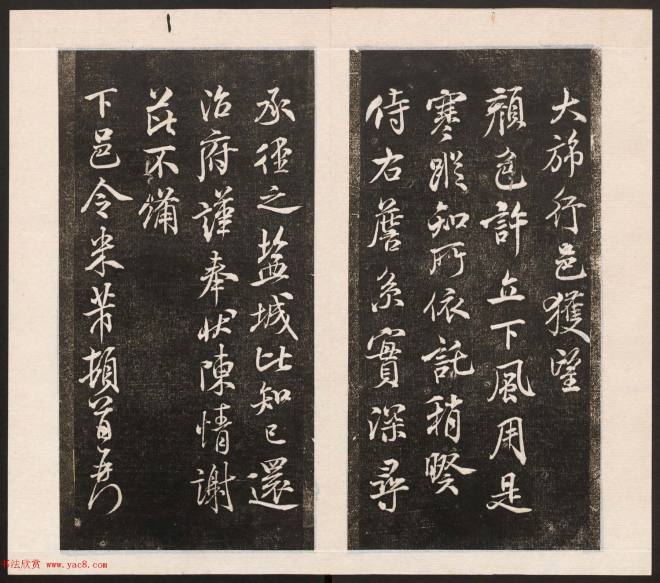 大旆行邑獲望
顏色許立下風用是
寒蹤知所依託稍暌
侍右詹系實深尋
承徑之鹽城比知已還
治府謹奉狀陳情謝
茲不備
下邑令米芾頓首再
书法欣赏 www.yac8.com